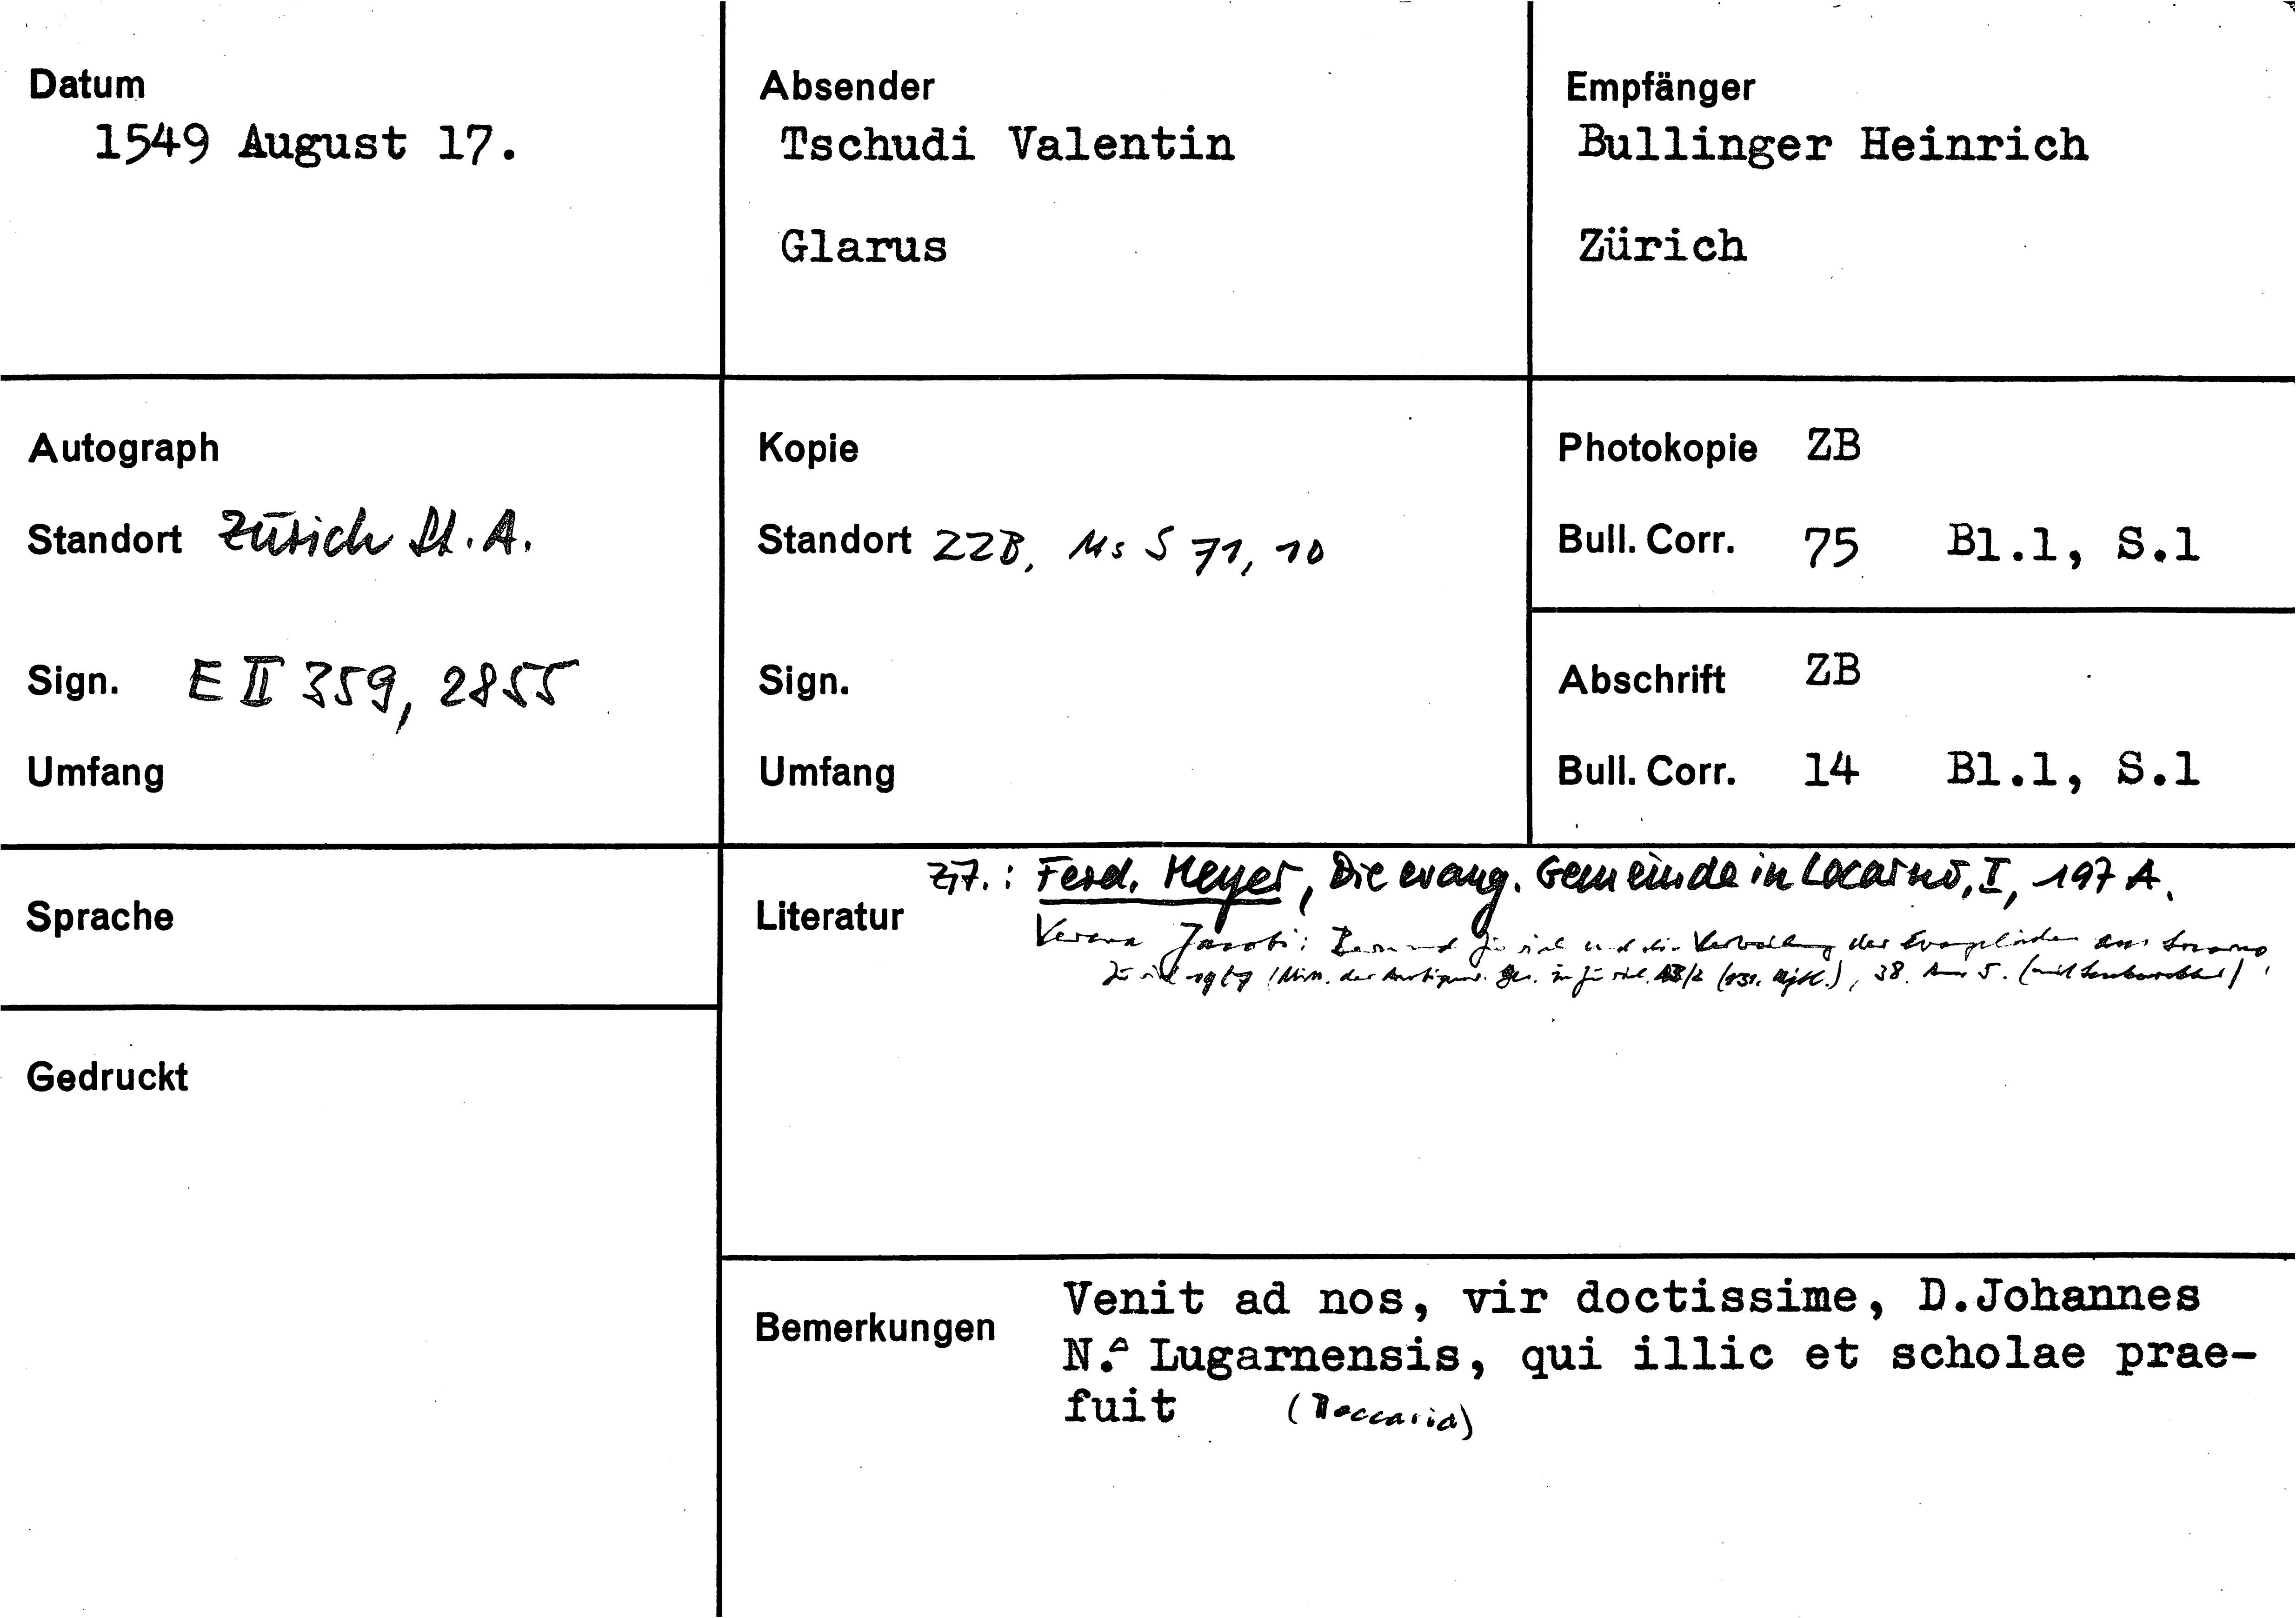 Datum
1549 August 17.
Absender
Tschudi Valentin
Glarus
Empfänger
Bullinger Heinrich
Zürich
Autograph
Standort Zürich St. A.
Sign. E II 359, 2855
Umfang
Kopie
Standort ZZB, Ms S 71, 10
Sign.
Umfang
Photokopie ZB
Bull. Corr. 75 Bl.1, S.1
Abschrift ZB
Bull. Corr. 14 Bl.1, S.1
Sprache
Gedruckt
Literatur
Ferd. Meyer, Die evang. Gemeinde in Locarno, I, 197 A.
Verena Jacobi: Bern und Zürich und die Vertreibung der Evangelischen aus Locarno
Zürich 1967 (Mitt. der Antiquar. Ges. in Zürich 43/2 (131. Njbl.), 38. Anm 5.
Bemerkungen
Venit ad nos, vir doctissime, D.Johannes
N. Lugarnensis, qui illic et scholae prae-
fuit (Beccaria)